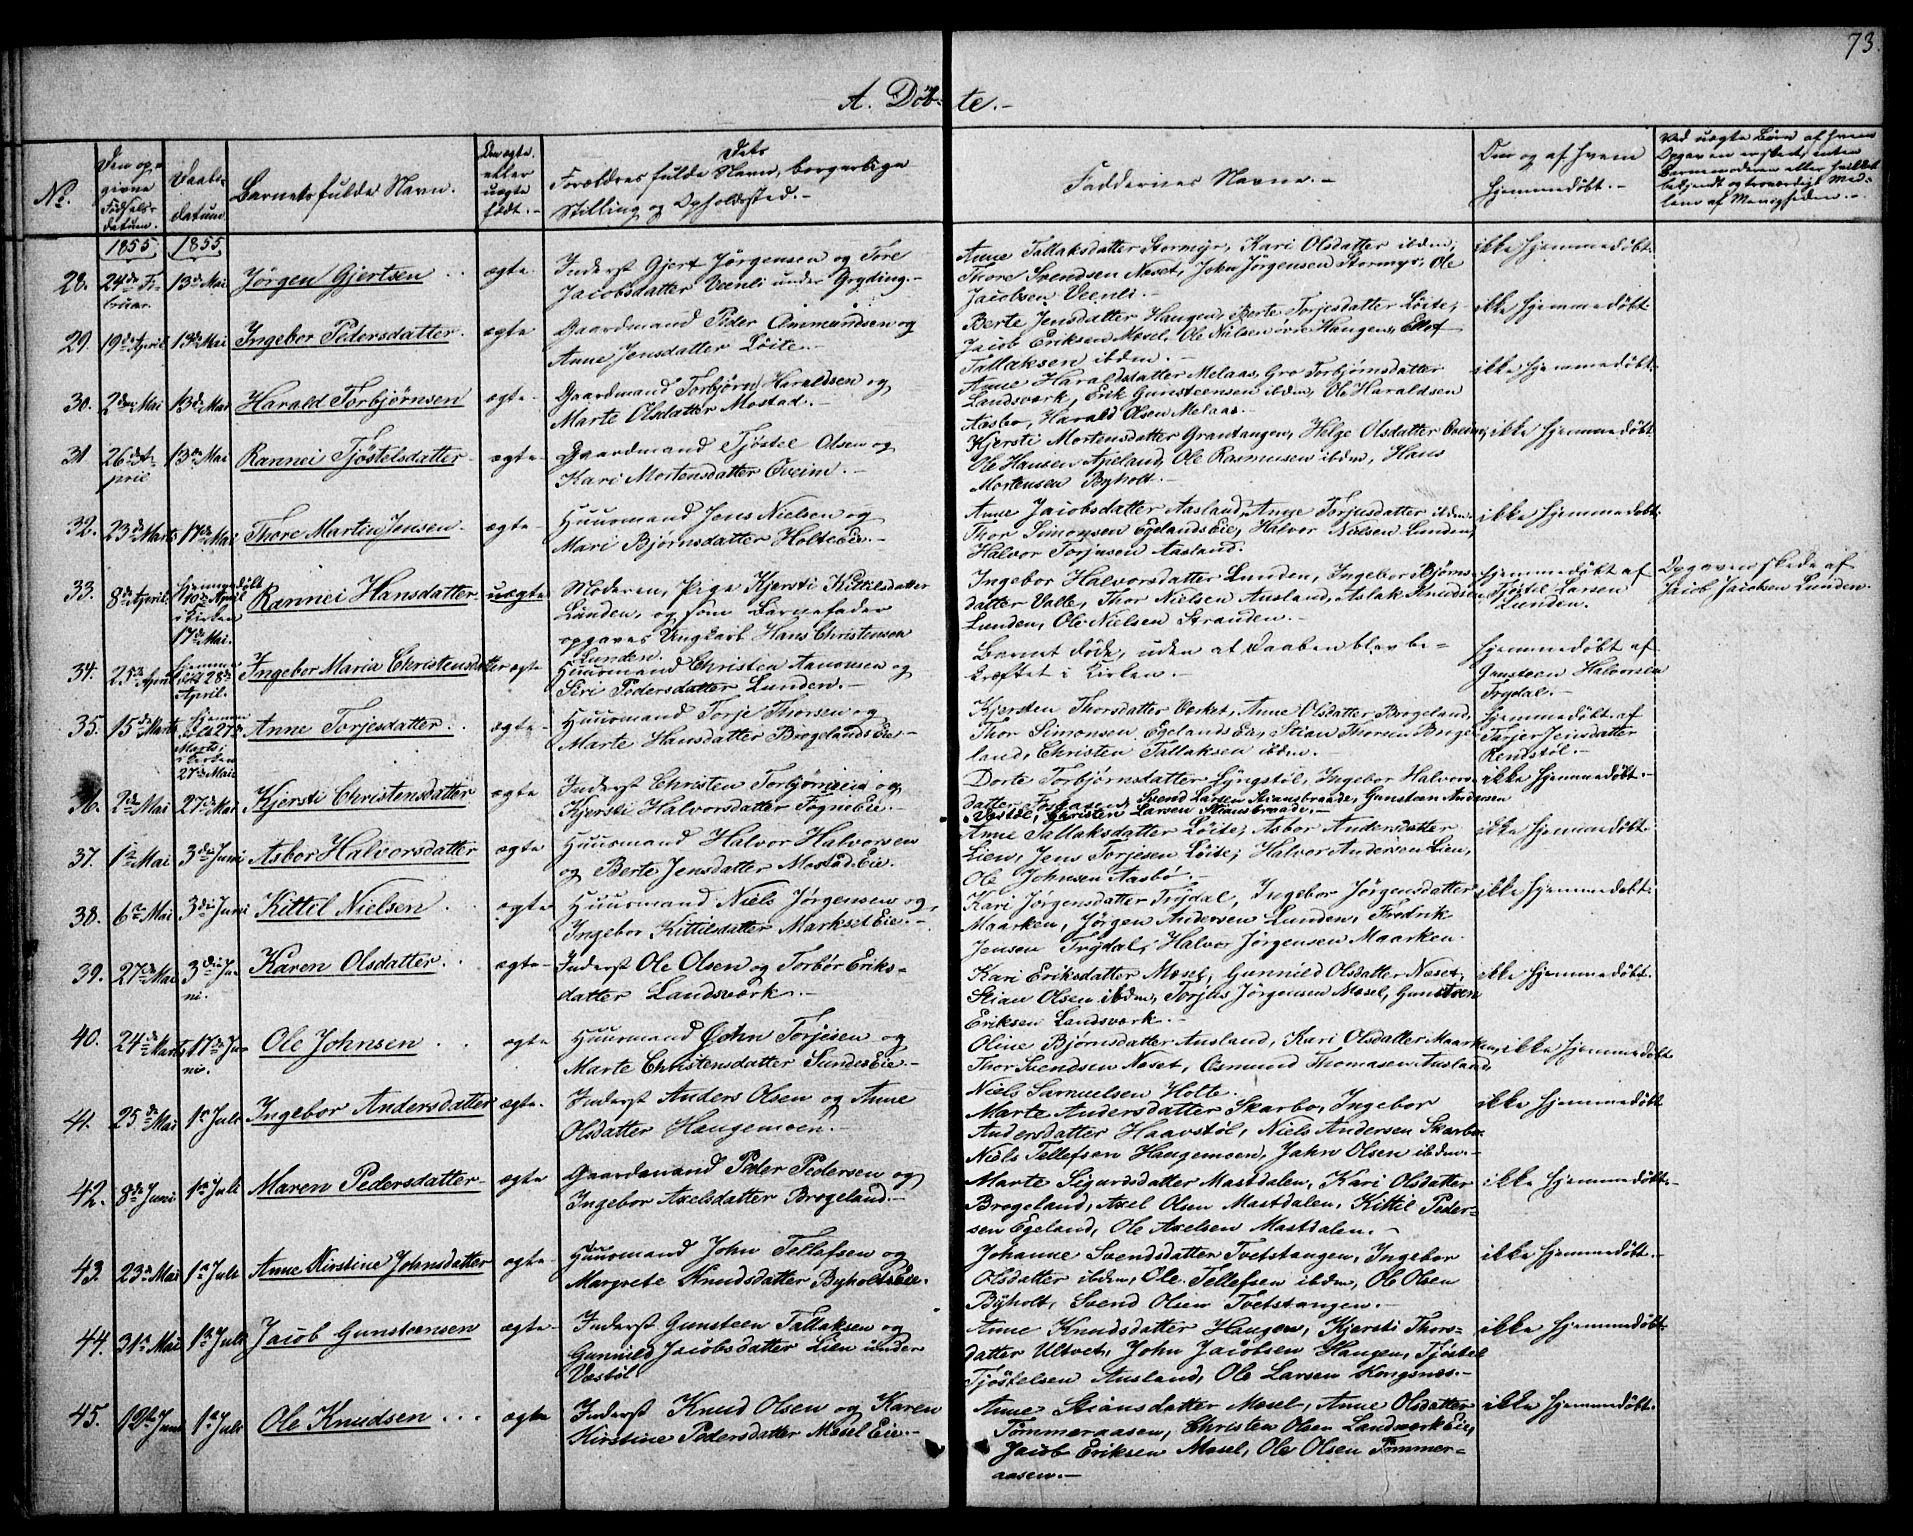 73.
A. Døb-te.-
No.
Den op-
givne
Fødsels-
datum.
Daabs-
datum
Barnets fulde Navn.
Om ægte
eller
uægte
født.-
Dets
Forældres fulde Navn, borgerlige
Stilling og Opholdssted.-
Faddernes Navne.-
Om og af hvem
hjemmedøbt.-
Ved uægte Børn af hvem
Opgaven er skeet, enten
Barnemoderen eller hvilket
bekjendt og troværdigt Med-
lem af Menigheden.-
1855 1855
28. 24de Fe-
bruar. 13de Mai Jørgen Gjertsen ægte Inderst Gjert Jørgensen og Tore
Jacobsdatter Veenli under Gryding.-
Anne Tallaksdatter Stormyr, Kari Olsdatter ibdm,
Thore Svendsen Næset, John Jørgensen Stormyr, Ole
Jacobsen Veenli.-
ikke hjemmedøbt.
29. 19de April 13de Mai Ingebor Pedersdatter. ægte Gaardmand Peder Ommundsen og
Anne Jensdatter Løite.-
Berte Jensdatter Haugen, Berte Torjesdatter Løite,
Jacob Eriksen Mosel, Ole Nielsen Haugen,
Tallaksen ibdm.-
ikke hjemmedøbt.
30. 2den Mai 13de Mai Harald Torbjørnsen ægte Gaardmand Torbjørn Haraldsen og
Marte Olsdatter Mostad.-
Anne Haraldsdatter Melaas, Gro Torbjørnsdatter
Landsværk, Erik Gunsteensen ibdm, Ole Haraldsen
Aasbø, Harald Olsen Melaas.-
ikke hjemmedøbt.
31. 26de A-
pril 13de Mai Rannei Tjøstelsdatter ægte Gaardmand Tjøstel Olsen og
Kari Mortensdatter Oveim.-
Kjersti Mortensdatter Grantangen, Helge Olsdatter Oveim,
Ole Hansen Apeland, Ole Rasmusen ibdm, Hans
Mortensen Byholt.-
ikke hjemmedøbt
32. 23de Marts 17de Mai Thore Martin Jensen. ægte Huusmand Jens Nielsen og
Mari Bjørnsdatter Holte Eie.-
Anne Jacobsdatter Aasland, Anne Torjusdatter ibdm,
Thor Simonsen Egelands Eie, Halvor Nielsen Lunden,
Halvor Torjusen Aasland.
ikke hjemmedøbt.
33. 8de April. hjemmedøbt
10de April
i Kirken
17de Mai. Rannei Hansdatter uægte Moderen, Pige Kjersti Kittilsdatter
Lunden, og som Barnefader
opgaves Ungkarl Hans Christensen
Lunden.
Ingebor Halvorsdatter Lunden, Ingebor Bjørns-
datter Valle, Thor Nielsen Ausland, Aslak Knudsen
Lunden, Ole Nielsen Stranden.-
hjemmedøbt af
Tjøstel Larsen
Lunden.
Opgaven skede af
Jacob Jacobsen Lunden
34. 25de April hjemme
døbt 28de
April. Ingebor Maria Christensdatter ægte Huusmand Christen Aanonsen og
Siri Pedersdatter Lunden.-
Barnet døde, uden at Daaben blev be-
kræftet i Kirken.-
hjemmedøbt af
Gunsteen Halvorsen
Trydal.-
35. 15de Marts hjemme
døbt 27de
Marts;
i Kirken
27de Mai Anne Torjesdatter. ægte Huusmand Torje Thorsen og
Marte Hansdatter Brogelands Eie-
Kjersten Thorsdatter Værket, Anne Olsdatter Brogeland,
Thor Simonsen Egelands Eie, Stian Thorsen Broge-
land, Christen Tallaksen ibdm.
hjemmedøbt af
Torjer Jensdatter
Rendstøl.-
36. 2den Mai 27de Mai Kjersti Christensdatter ægte Inderst Christen Torbjørnsen og
Kjersti Halvorsdatter Fogne Eie.-
Dorte Torbjørnsdatter Lyngstøl, Ingebor Halvors-
datter Fosaasen, Svend Larsen Stiansbraade, Gunsteen Andersen
Væstøl, Christen Larsen Stiansbraade.-
ikke hjemmedøbt.-
37. 1ste Mai 3die Juni Asbor Halvorsdatter ægte Huusmand Halvor Halvorsen
og Berte Jensdatter Mostad Eie.
Anne Tallaksdatter Løite, Asbor Andersdatter
Lien, Jens Torjesen Løite, Halvor Andersen Lien,
Ole Johnsen Aasbø.-
ikke hjemmedøbt.
38. 6te Mai 3die Juni Kittil Nielsen ægte Huusmand Niels Jørgensen og
Ingebor Kittilsdatter Markset Eie.-
Kari Jørgensdatter Trydal, Ingebor Jørgensdatter
Maarken, Jørgen Andersen Lunden, Fredrik
Jensen Trydal, Halvor Jørgensen Maarken.
ikke hjemmedøbt.
39. 27de Mai 3die Ju-
ni. Karen Olsdatter. ægte Inderst Ole Olsen og Torbør Eriks-
datter Landsværk.-
Kari Eriksdatter Mosel, Gunnild Olsdatter Næset,
Stian Olsen ibdm, Torjus Jørgensen Mosel, Gunsteen
Eriksen Landsværk.-
ikke hjemmedøbt.
40. 24de Marts 17de Ju-
ni. Ole Johnsen ægte Huusmand John Torjesen og
Marte Christensdatter Sundes Eie.-
Oline Bjørnsdatter Ausland, Kari Olsdatter Maarken,
Thor Svendsen Næset, Osmund Thomasen Ausland
Niels Samuelsen Holte.
ikke hjemmedøbt
41. 25de Mai 1ste Juli Ingebor Andersdatter ægte. Inderst Anders Olsen og Anne
Olsdatter Haugemoen.-
Marte Andersdatter Skarbo, Ingebor
Andersdatter Haavstøl, Niels Andersen Skarbo,
Niels Tellefsen Haugemoen, John Olsen ibdm.-
ikke hjemmedøbt
42. 8de Juni 1ste Juli Maren Pedersdatter ægte Gaardmand Peder Pedersen og
Ingebor Axelsdatter Brogeland.-
Marte Sigurdsdatter Mastdalen, Kari Olsdatter
Brogeland, Axel Olsen Mastdalen, Kittil Peder-
sen Egeland, Ole Axelsen Mastdalen.-
ikke hjemmedøbt.-
43. 23de Mai 1ste Juli Anne Kirstine Johnsdatter ægte Huusmand John Tellefsen og
Margrete Knudsdatter Byholts Eie.
Johanne Svendsdatter Tvetstangen, Ingebor
Olsdatter ibdm, Ole Tellefsen ibdm, Ole Olsen
Byholt, Svend Olsen Tvetstangen.-
ikke hjemmedøbt.-
44. 31te Mai 1ste Juli Jacob Gunsteensen ægte Inderst Gunsteen Tallaksen og
Gunnild Jacobsdatter Lien under
Væstøl
Anne Knudsdatter Haugen, Kjersti Thors-
datter Ultvet, John Jacobsen Haugen, Tjøstel
Tjøstelsen Ausland, Ole Larsen Kongsnæs.-
ikke hjemmedøbt.
45. 12te Juni 1ste Juli Ole Knudsen ægte Inderst Knud Olsen og Karen
Kirstine Pedersdatter Mosel Eie.-
Anne Stiansdatter Mosel, Anne Olsdatter
Tømmeraasen, Christen Olsen Landsværk Eie,
Jacob Eriksen Mosel, Ole Olsen Tømmer-
aasen.-
ikke hjemmedøbt.